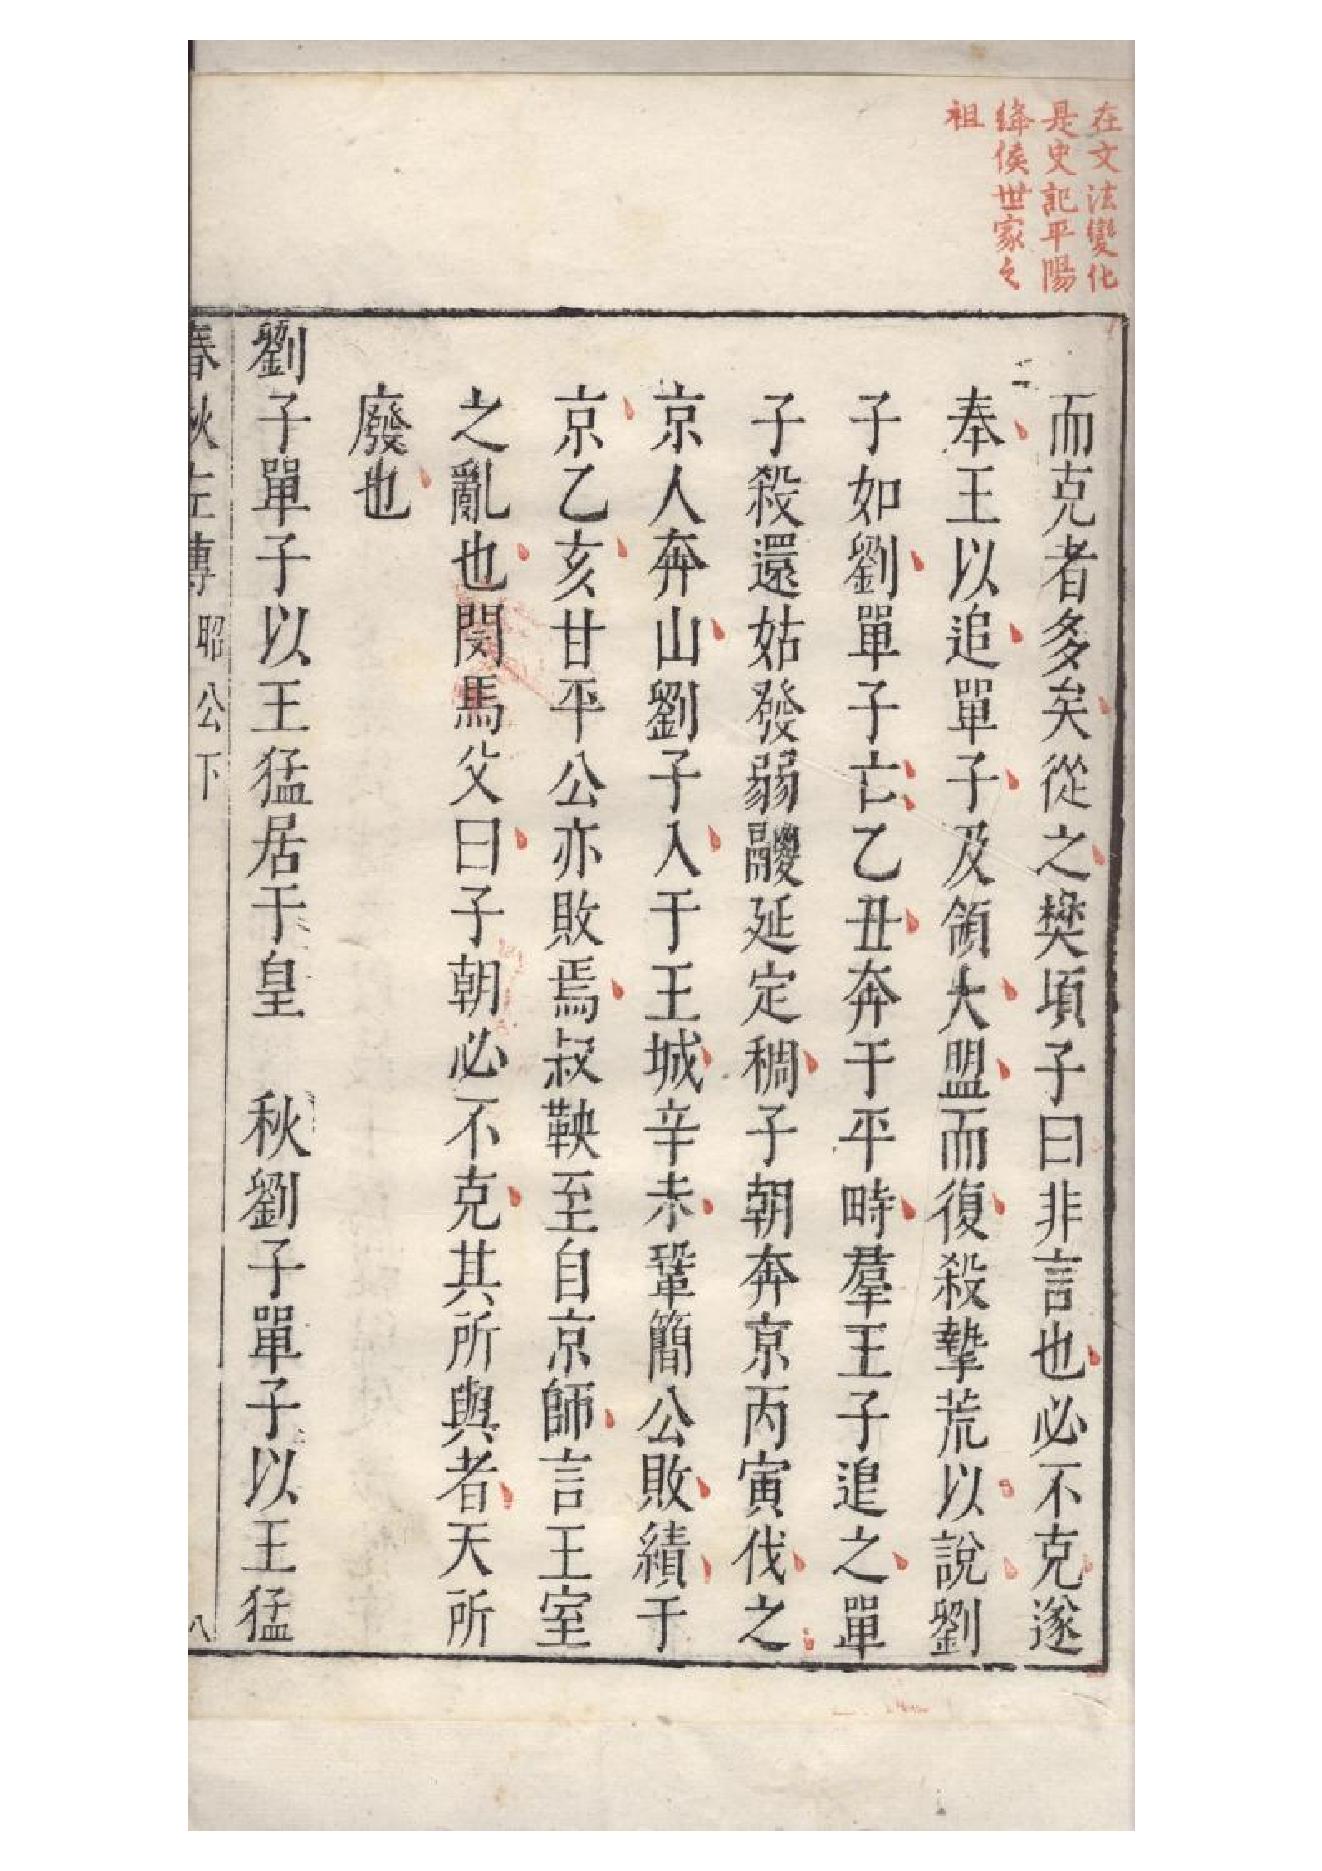 在文法變化
是史記平陽
絳侯世家之
祖
而克者多矣從之樊頃子曰非言也必不克遂
奉王以追單子及領大盟而復殺摯荒以說劉
子如劉單子亡乙丑奔于平畤羣王子追之單
子殺還姑發弱鬷延定稠子朝奔京丙寅伐之
京人奔山劉子入于王城辛未鞏簡公敗績于
京乙亥甘平公亦敗焉叔鞅至自京師言王室
之亂也閔馬父曰子朝必不克其所與者天所
廢也
劉子單子以王猛居于皇　秋劉子單子以王猛
春秋左傳 昭公下 八